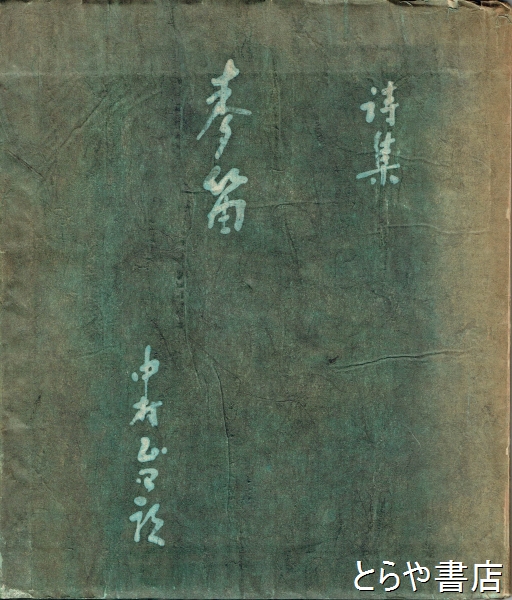 詩集
麦笛
中村
とらや書店